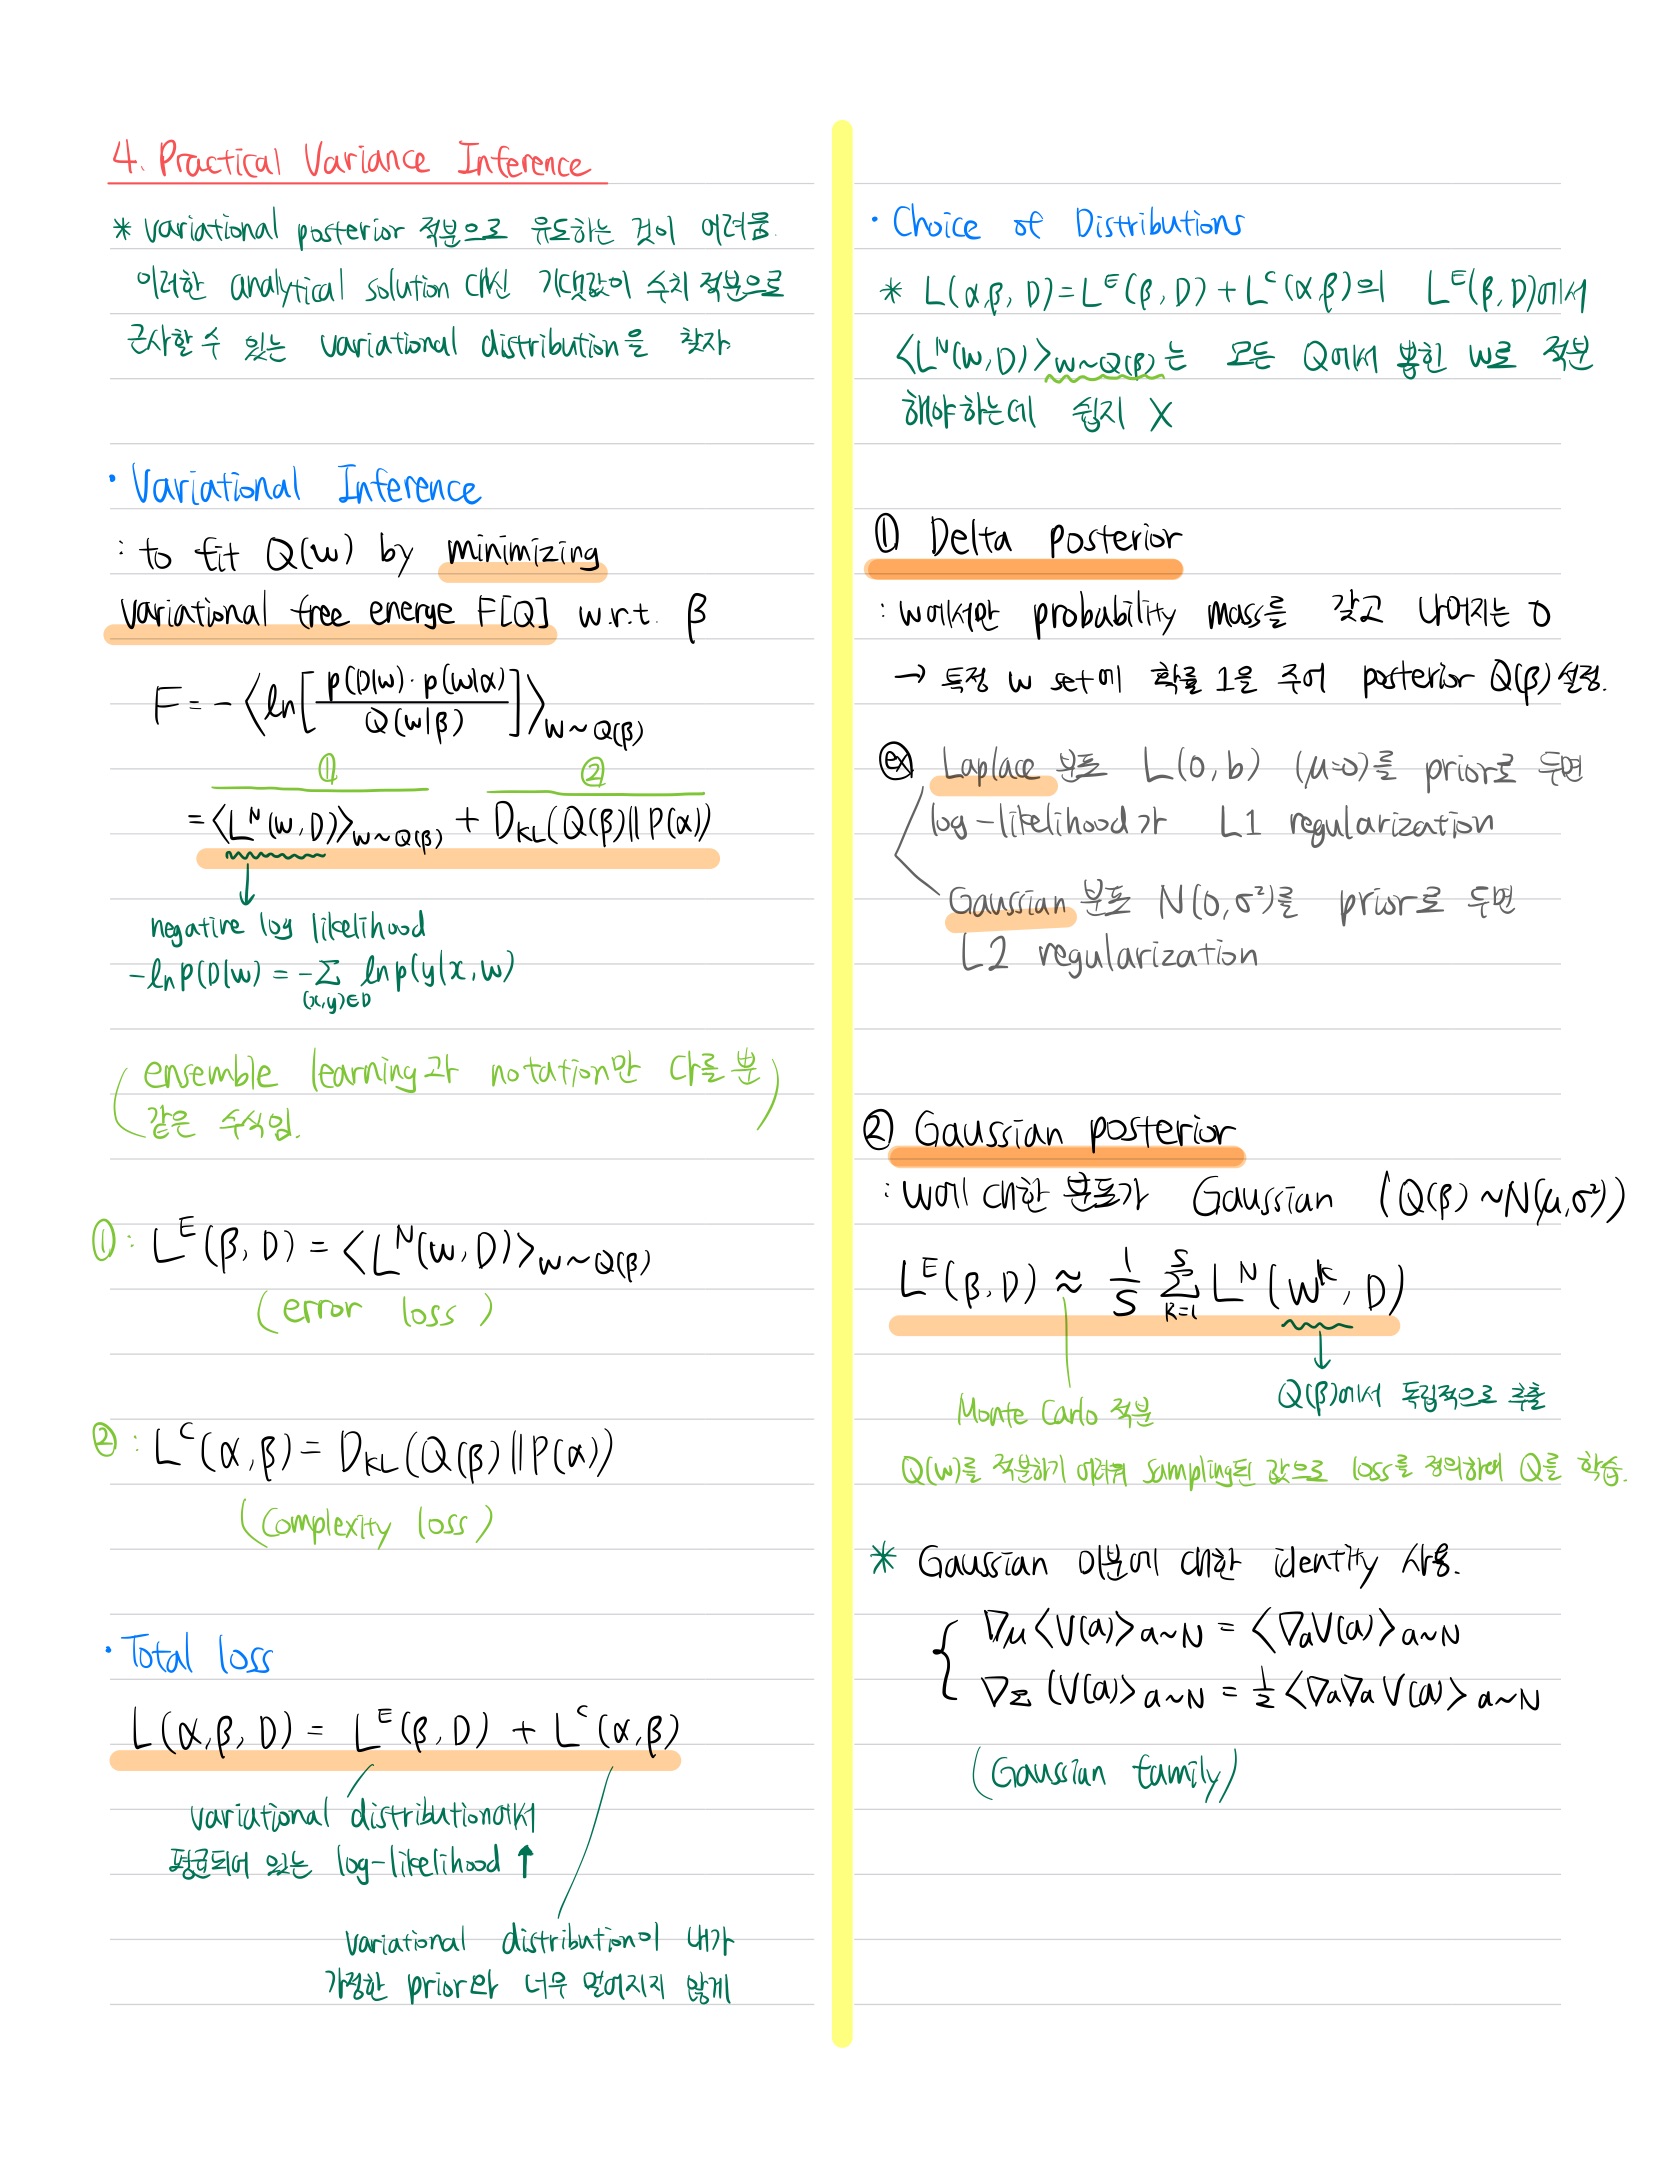 4. Practical Variance Inference
* variational posterior 적분으로 유도하는 것이 어려움.
이러한 analytical solution 대신 기댓값이 수치 적분으로
근사할 수 있는 variational distribution을 찾자.
· Variational Inference
: to fit Q(w) by minimizing
variational free energe F[Q] w.r.t. β
F = - ⟨ln[p(D|w)·p(w|α) / Q(w|β)]⟩w~Q(β)
① ②
= ⟨L^N(w, D)⟩w~Q(β) + D_KL(Q(β)||P(α))
↓
negative log likelihood
-lnP(D|w) = -Σ(x,y)∈D lnp(y|x, w)
(ensemble learning과 notation만 다를 뿐
같은 수식임.)
① : L^E(β, D) = ⟨L^N(w, D)⟩w~Q(β)
(error loss)
② : L^C(α, β) = D_KL(Q(β)||P(α))
(complexity loss)
· Total loss
L(α, β, D) = L^E(β, D) + L^C(α, β)
variational distribution에서
평균되어 있는 log-likelihood ↑
variational distribution이 내가
가정한 prior와 너무 멀어지지 않게
· Choice of Distributions
* L(α,β, D) = L^E(β, D) + L^C(α,β)의 L^E(β, D)에서
⟨L^N(w, D)⟩w~Q(β)는 모든 Q에서 뽑힌 w로 적분
해야하는데 쉽지 X
① Delta posterior
: w에서만 probability mass를 갖고 나머지는 0
→ 특정 w set에 확률 1을 주어 posterior Q(β) 설정.
ex Laplace 분포 L(0, b) (μ=0)를 prior로 두면
log-likelihood가 L1 regularization
Gaussian 분포 N(0, σ²)를 prior로 두면
L2 regularization
② Gaussian posterior
: w에 대한 분포가 Gaussian (Q(β) ~ N(μ, σ²))
L^E(β, D) ≈ 1/S Σ_{k=1}^{S} L^N(w^k, D)
↓
Monte Carlo 적분 Q(β)에서 독립적으로 추출
Q(w)를 적분하기 어려워 sampling된 값으로 loss를 정의하여 Q를 학습.
* Gaussian 미분에 대한 identity 사용.
{ ∇μ⟨V(a)⟩a~N = ⟨∇aV(a)⟩a~N
∇Σ (V(a)⟩a~N = 1/2 ⟨∇a∇a V(a)⟩a~N
(Gaussian family)